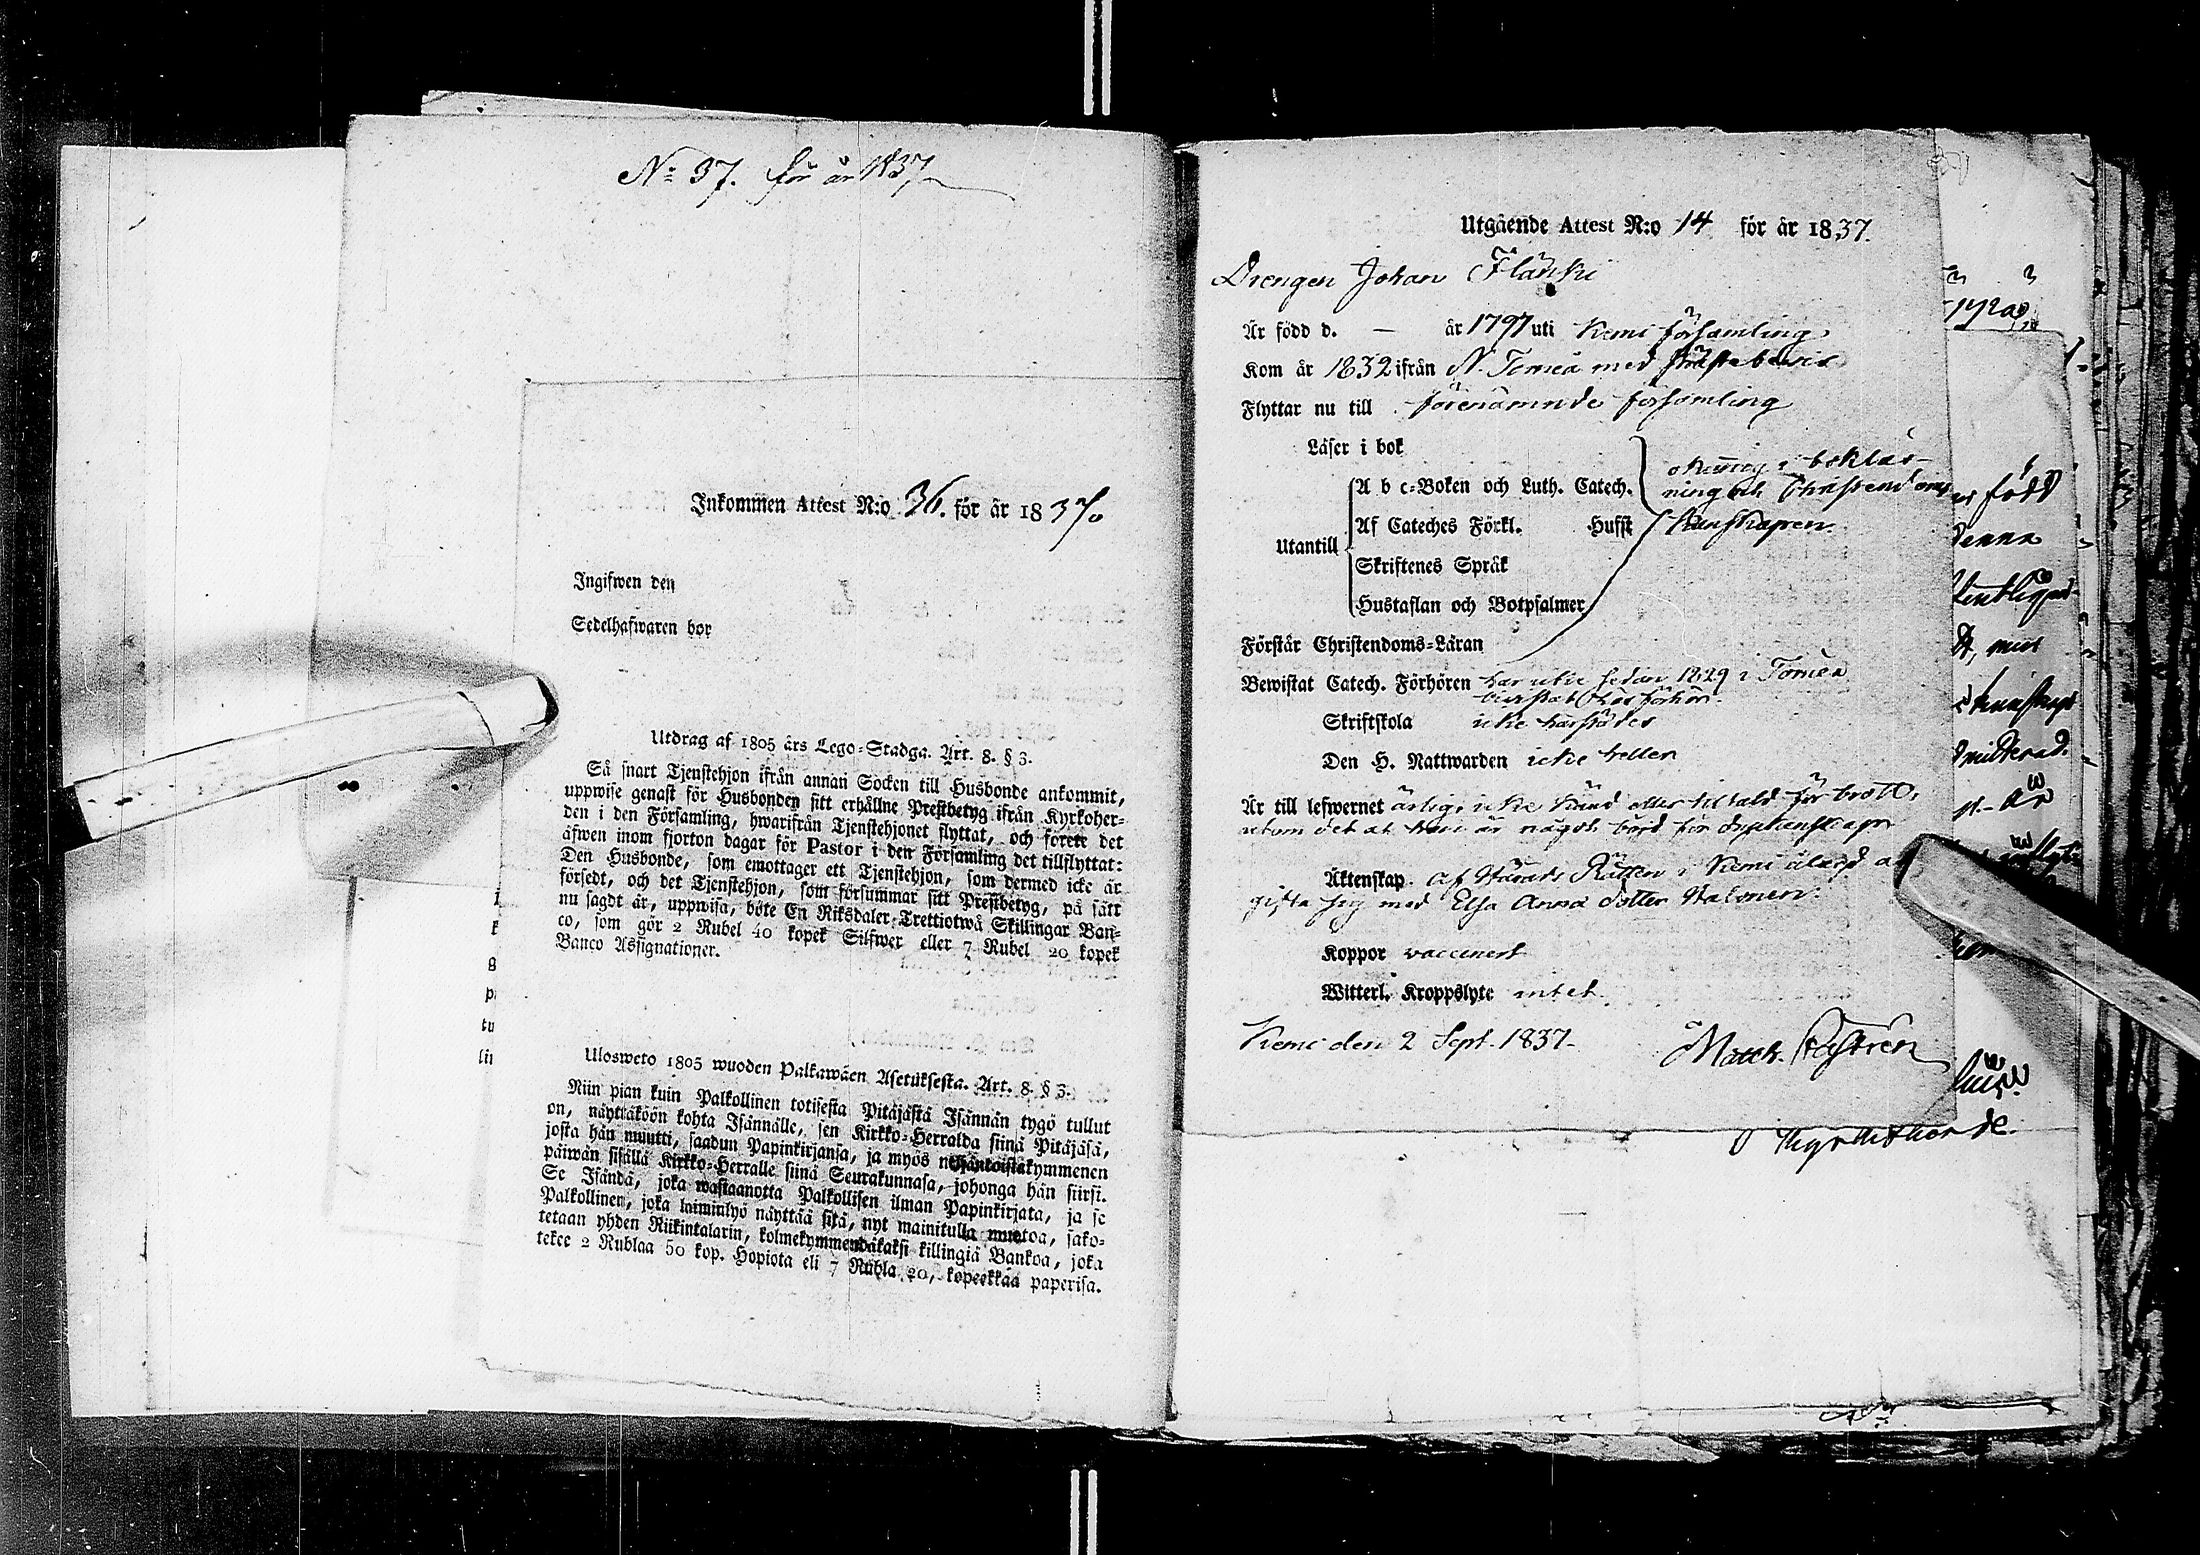 No 37. för år 1837
Inkommen Attest N:o 36. för år 1837.
Ingifwen den
Sedelhafwaren bor
Utdrag af 1805 års Lego-Stadga. Art. 8. § 3.
Så snart Tjenstehjon ifrån annan Socken till Husbonde ankommit,
uppwise genast för Husbonden sitt erhållne Prestbetyg ifrån Kyrkoher-
den i den Församling, hwarifrån Tjenstehjonet flyttat, och förete det
äfwen inom fjorton dagar för Pastor i den Församling det tillflyttat:
Den Husbonde, som emottager ett Tjenstehjon, som dermed icke är
försedt, och det Tjenstehjon, som försummar sitt Prestbetyg, på sätt
nu sagdt är, uppwisa, böte En Riksdaler Trettiotwå Skillingar Ban-
co, som gör 2 Rubel 40 kopek Silfwer eller 7 Rubel 20 kopek
Banco Assignationer.
Ulosweto 1805 wuoden Palkawäen Asetuksesta. Art. 8. § 3.
Niin pian kuin Palkollinen totisesta Pitäjästä Isännän tygö tullut
on, näyttäköön kohta Isännälle, sen Kirkko-Herralda siinä Pitäjäsä,
josta hän muutti, saadun Papinkirjansa, ja myös neljäntoistakymmenen
päiwän sisällä Kirkko-Herralle siinä Seurakunnasa, johonga hän siirsi.
Se Isändä, joka wastaanotta Palkollisen ilman Papinkirjata, ja se
Palkollinen, joka laiminlyö näyttää sitä, nyt mainitulla muotoa, sako-
tetaan yhden Riikintalarin, kolmekymmendäkaksi killingiä Bankoa, joka
tekee 2 Rublaa 50 kop. Hopiota eli 7 Rubla 20, kopeekkaa paperisa.
Utgående Attest N:o 14 för år 1837.
Drengen Johan Flänki
Är född d. — år 1797 uti Kemi församling
Kom år 1832 ifrån N. Torneå med
Flyttar nu till förenämnde församling
Läser i bok
A b c-Boken och Luth. Catech. okunnig i bokläs-
ning och Christendoms
Utantill Af Cateches Förkl. Hufst kunskapen.
Skriftenes Språk
Hustaflan och Botpsalmer
Förstår Christendoms-Läran
Bewistat Catech. Förhören har icke sedan 1829 i Torneå
bevistat Läsförhör.
Skriftskola icke härstädes
Den H. Nattwarden icke heller
Är till lefwernet ärlig, icke känd eller tiltald för brott,
utom det at han är något böjd för dryckenskap
Äktenskap. Af Härads Rätten i Kemi ålagd at
gifta sig med Elsa Anna dotter Halonen.
Koppor vaccinerd
Witterl. Kroppslyte intet
Kemi den 2 Sept. 1837.
Matth. Castrén
född
denna